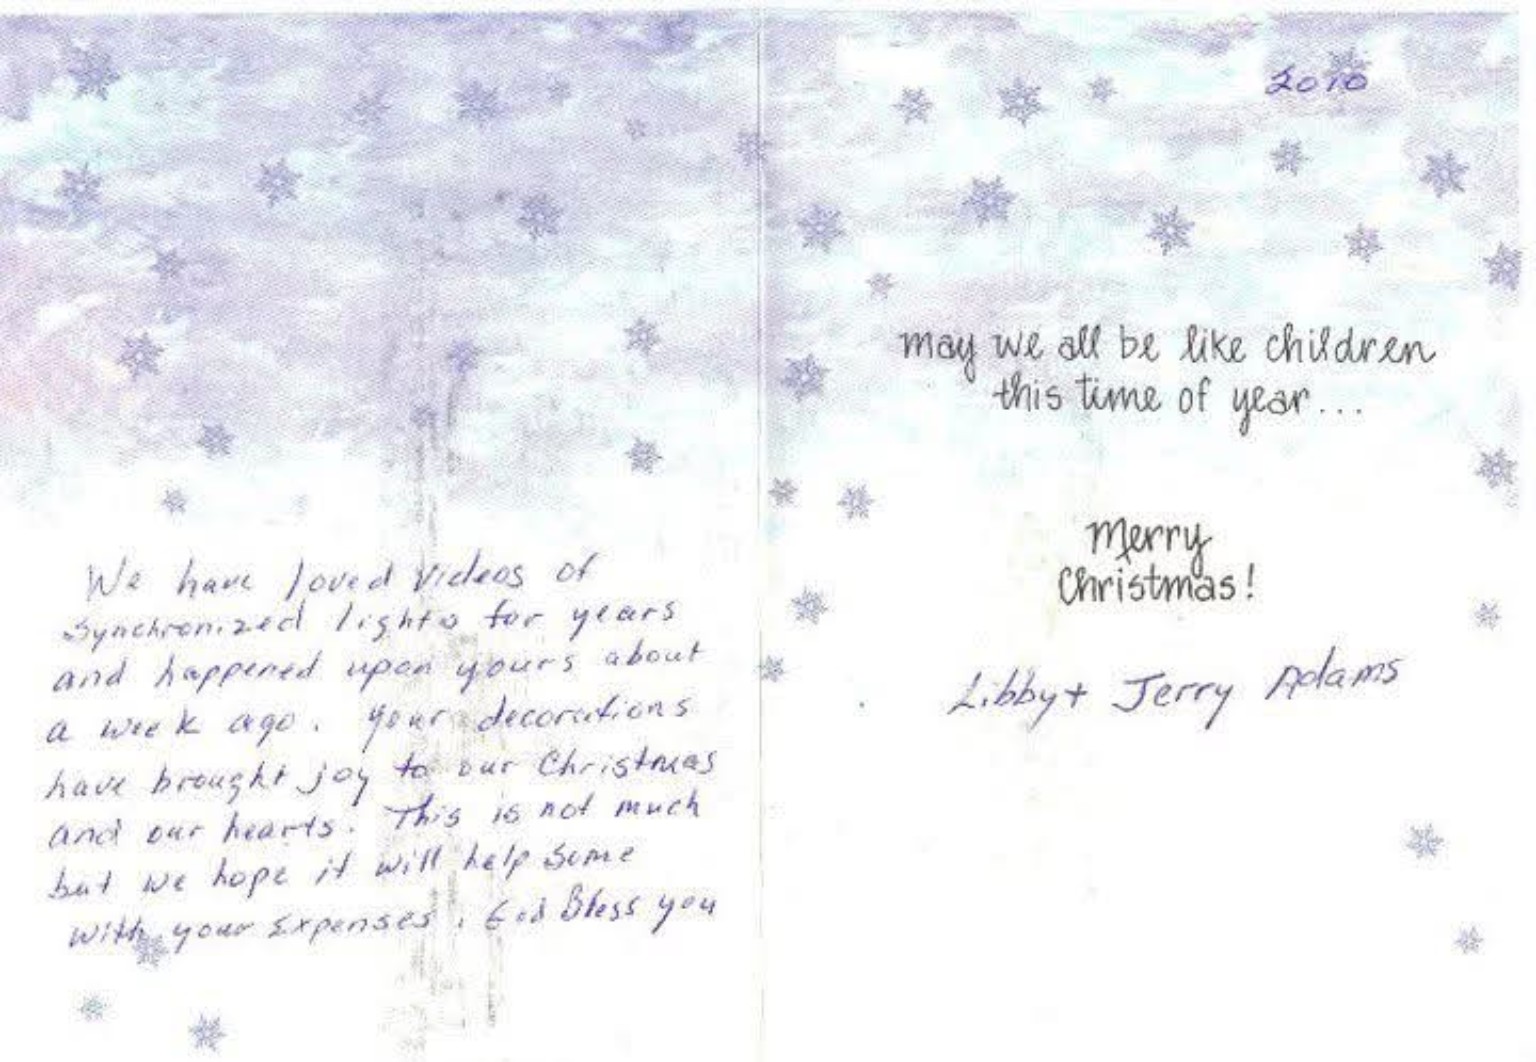 We have loved videos of
synchronized lights for years
and happened upon yours about
a week ago. Your decorations
have brought joy to our Christmas
and our hearts. This is not much
but we hope it will help some
with your expenses. God Bless you
2010
may we all be like children
this time of year...
Merry
Christmas!
Libby + Jerry Adams